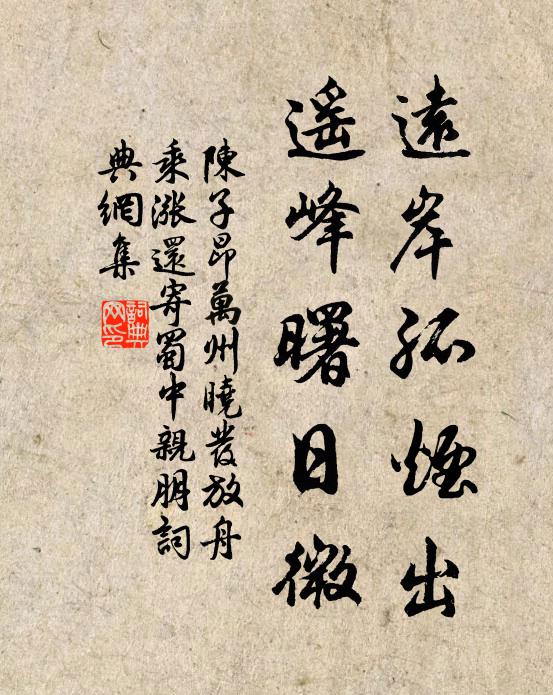 遠岸孤煙出
遥峰曙日微
陳子昂萬州曉發放舟
乘漲還寄蜀中親朋詞
典網集
詞典
网印